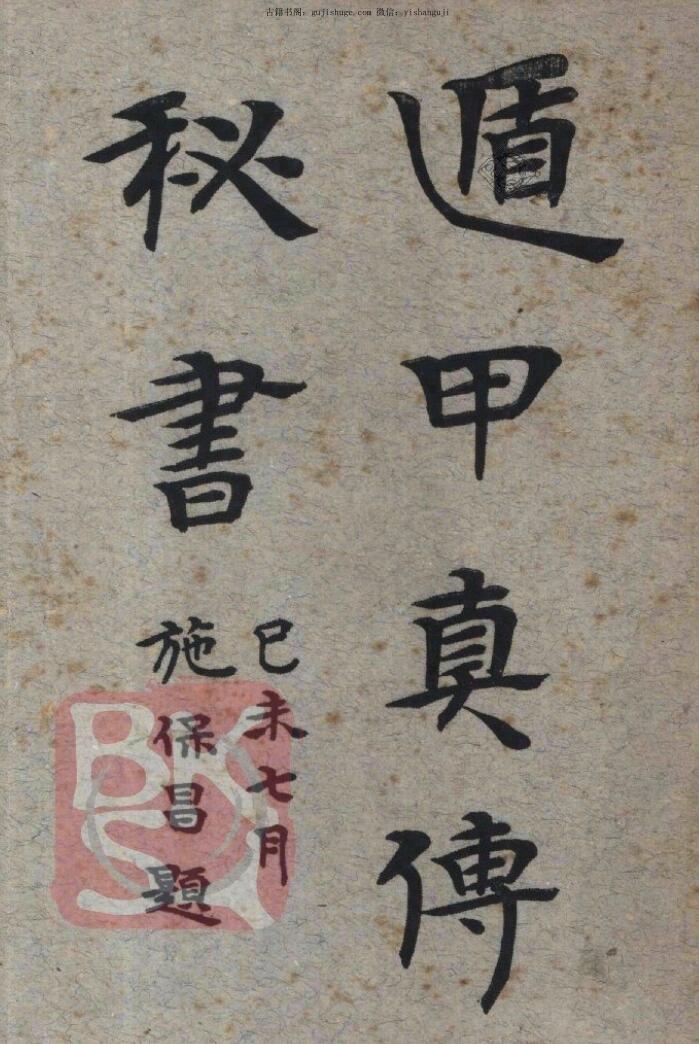 古籍书阁：gujishuge.com 微信：yishanguji
遁甲真傳
秘書
己未七月
施保昌題
BKS